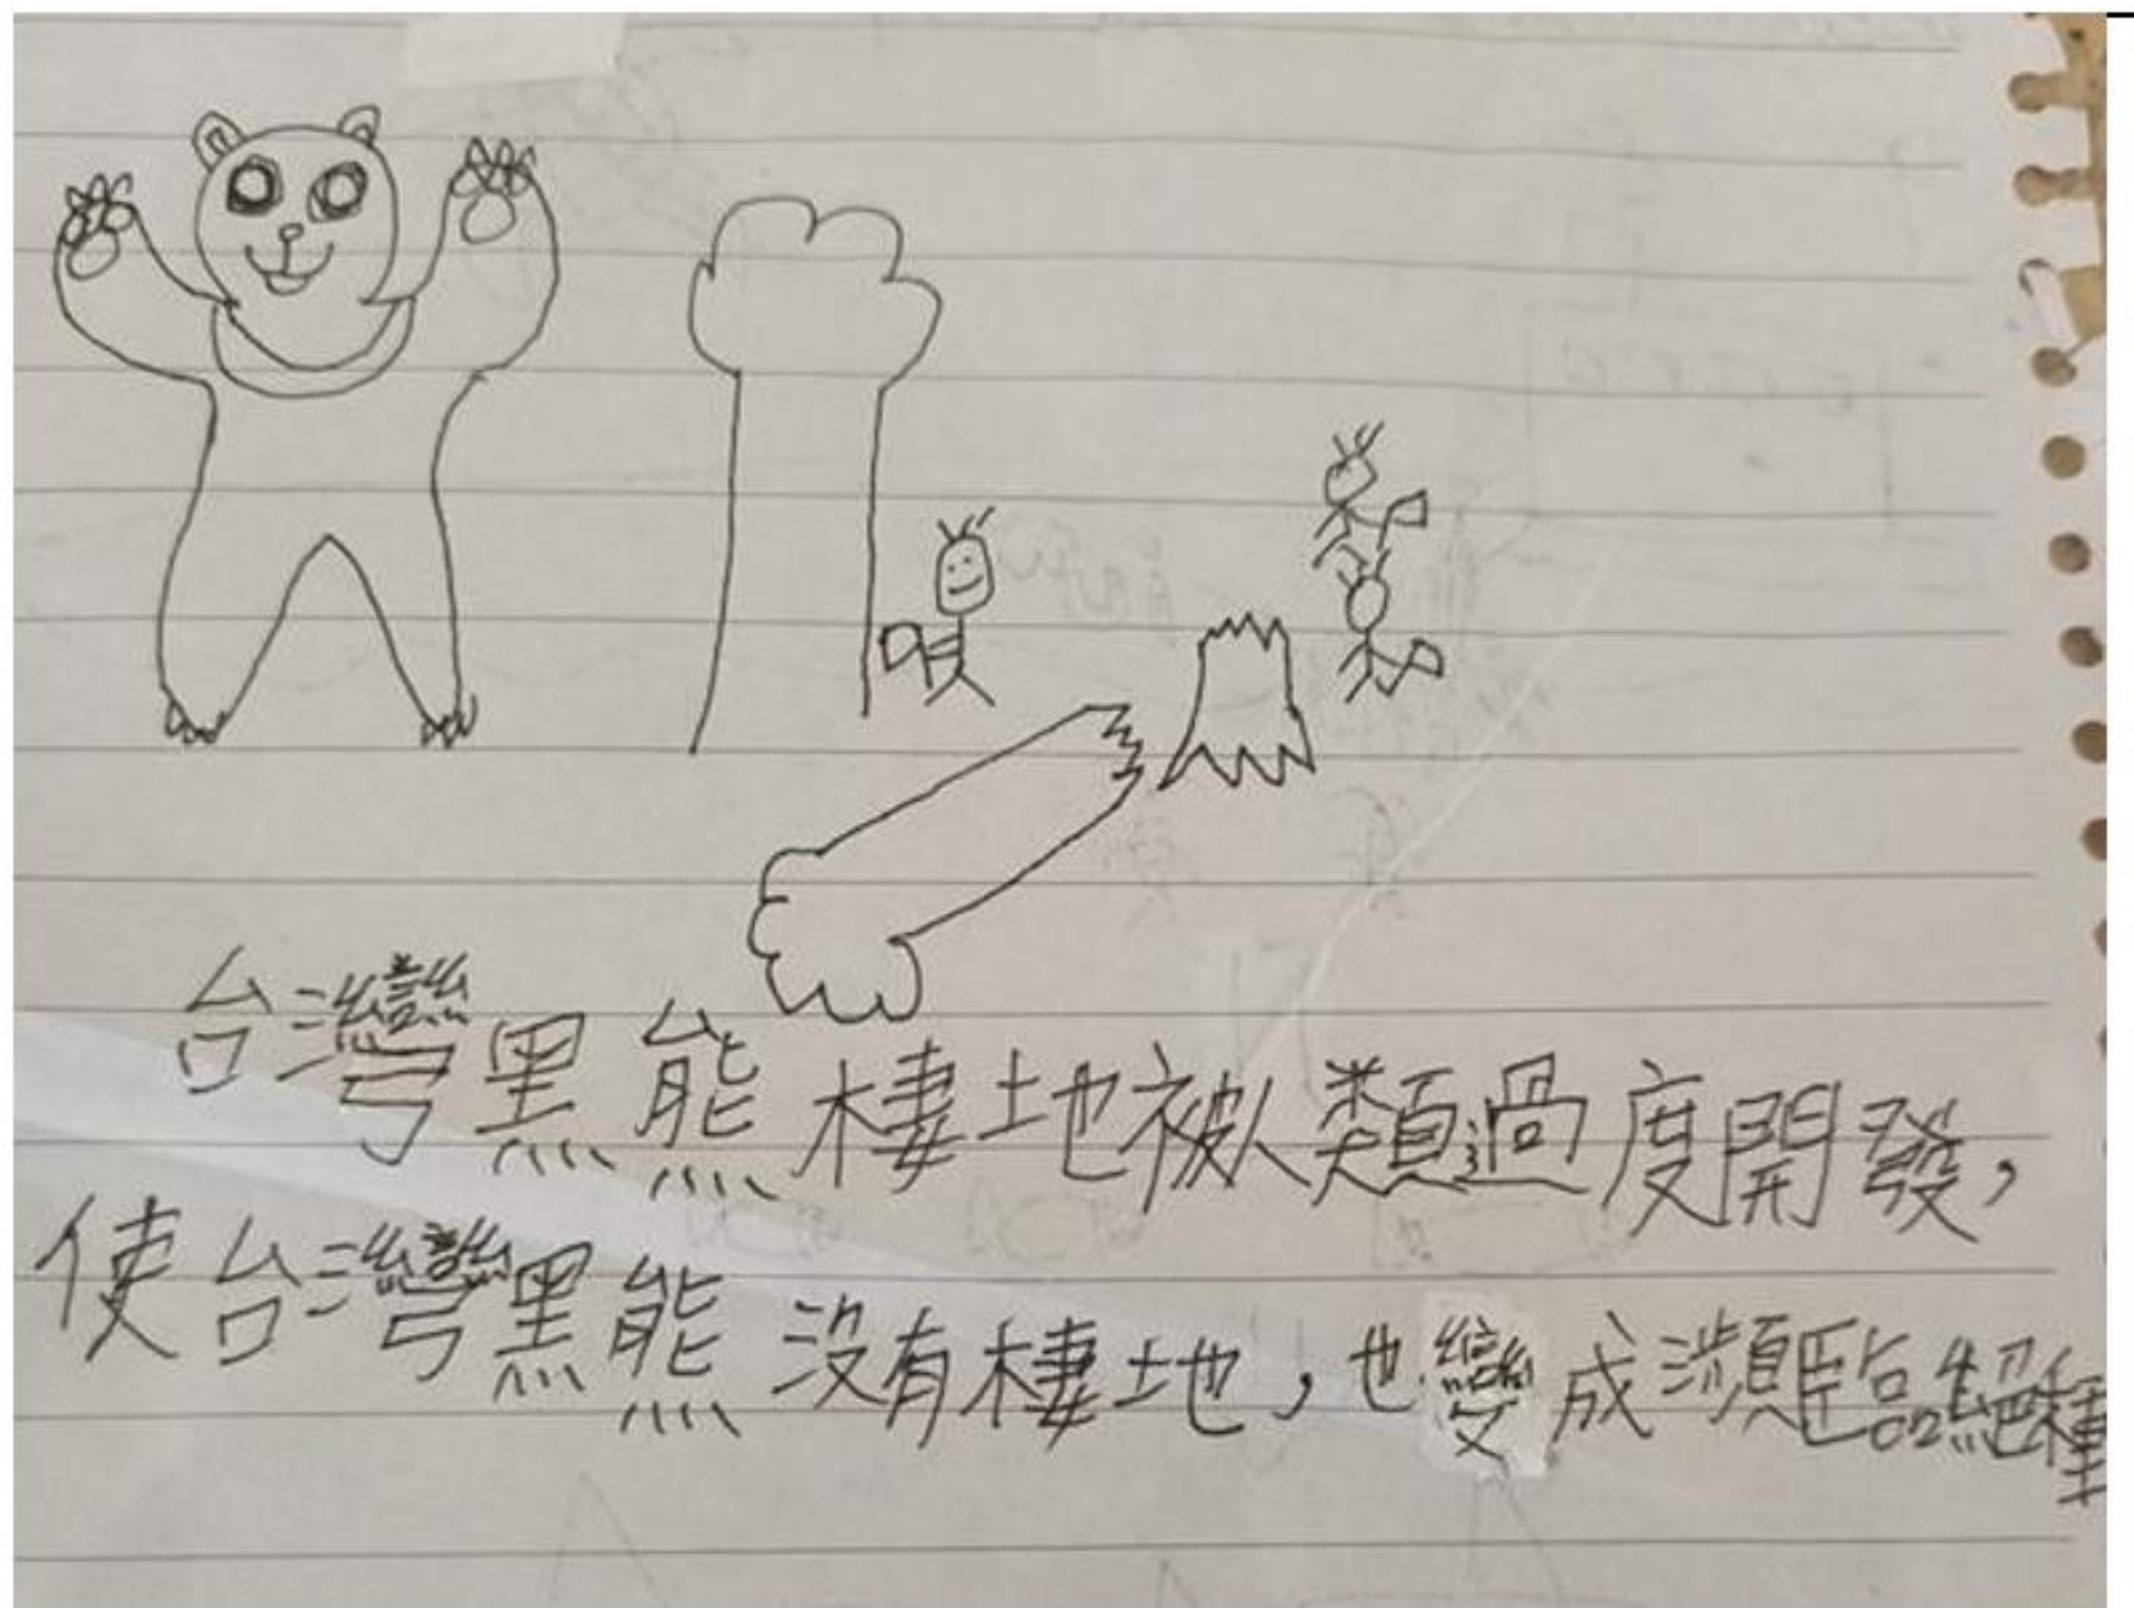 台灣黑熊棲地被人類過度開發，
使台灣黑熊沒有棲地，也變成瀕臨絕種